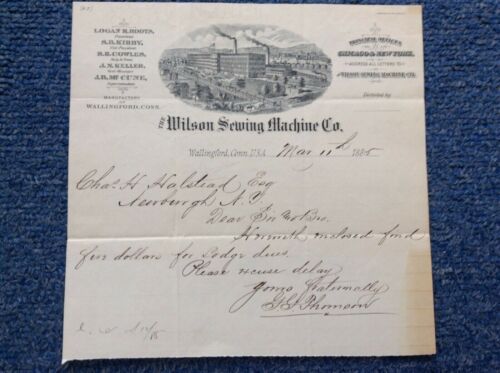 LOGAN H. ROOTS,
President
S.B. KIRBY,
Vice President
S.B. COWLES,
Sec'y & Treas
J.N. KELLER,
Gen'l Manager
J.B. McCUNE,
MANUFACTORY
AT
WALLINGFORD, CONN.
PRINCIPAL OFFICES
CHICAGO & NEW YORK.
ADDRESS ALL LETTERS TO
WILSON SEWING MACHINE CO.
Dictated by
THE Wilson Sewing Machine Co.
Wallingford, Conn. U.S.A. Mar 11th 1885
Chas. H Halstead Esq
Newburgh N.Y
Dear Sir & Bro.
Herewith enclosed find
five dollars for Lodge dues.
Please excuse delay
Yours Fraternally
Thomson